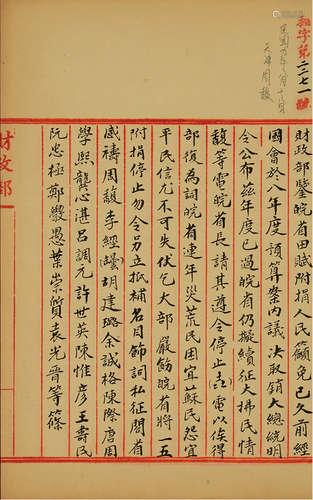 字第二二七一號
天津周馥
財政部鑒皖省田賦附捐人民籲免已久前經
國會於八年度預算案內議決取銷大總統明
令公布茲年度已過皖省仍擬續征大拂民情
馥等電皖省長請其遵令停止電以俟得
部復為詞皖省連年災荒民困宜蘇民怨宜
平民信尤不可失伏乞大部嚴飭皖省將一五
附捐停止勿令另立抵補名目飾詞私征閤省
感禱周馥李經胡建余誠格陳際唐周
學熙龔心湛呂調元許世英陳惟彥王壽民
阮忠極鄭愚葉崇質袁光晉等篠
財政部